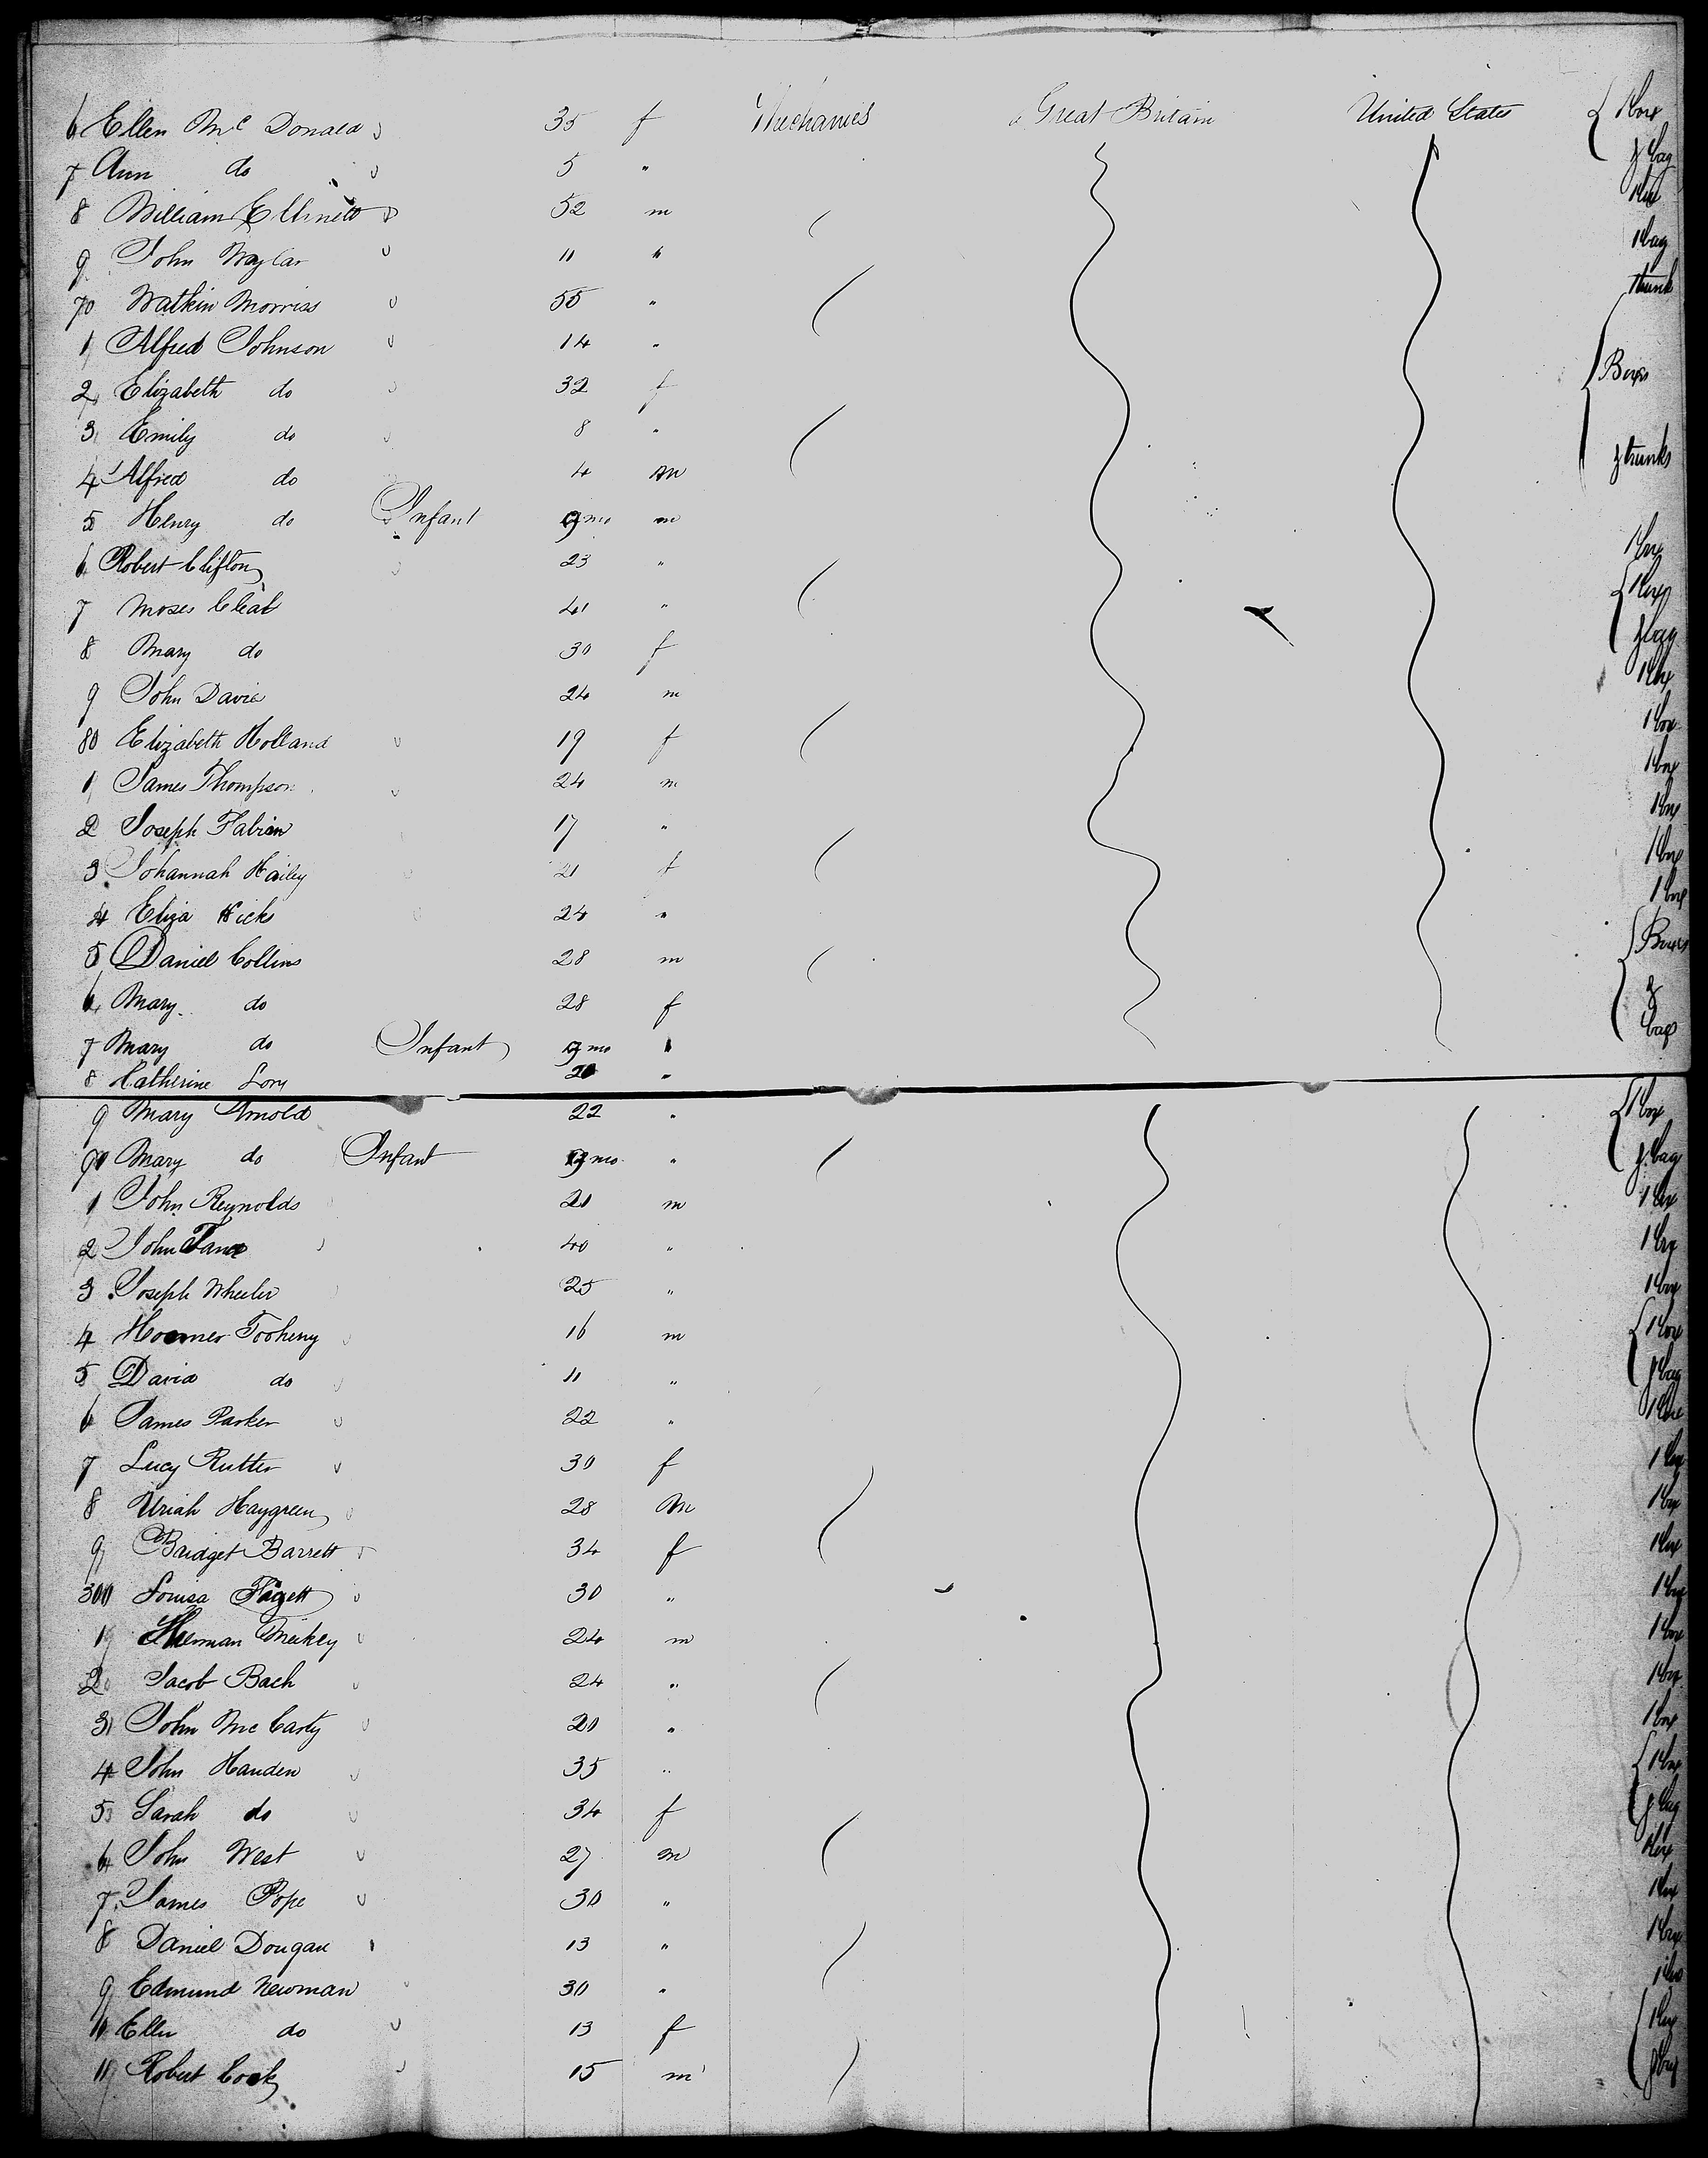 6 Ellen Mc Donald 35 f Mechanics Great Britain United States { 1 box
7 Ann do 5 " & bag
8 William 52 m 1 box
9 John Naylar 11 " 1 bag
70 Watkin Morriss 55 " 1 trunk
1 Alfred Johnson 14 "
2 Elizabeth do 32 f { Boxes
3 Emily do 8 "
4 Alfred do 4 m & trunks
5 Henry do Infant 9 mo m
6 Robert Clifton 23 " 1 box
7 Moses 41 " { 1 box
8 Mary do 30 f & bag
9 John Davie 24 m 1 box
80 Elizabeth Holland 19 f 1 box
1 James Thompson 24 m 1 box
2 Joseph Fabian 17 " 1 box
3 Johannah Hailey 21 f 1 box
4 Eliza Hicks 24 " 1 box
5 Daniel Collins 28 m { Boxes
6 Mary do 28 f &
7 Mary do Infant 9 mo " bags
8 Catherine Lory 20 "
9 Mary Arnold 22 " { 1 box
90 Mary do Infant 9 mo " & bag
1 John Reynolds 20 m 1 box
2 John 40 " 1 box
3 Joseph Wheeler 25 " 1 box
4 Tooheny 16 m { 1 box
5 David do 11 " & bag
6 James Parker 22 " 1 box
7 Lucy Rutter 30 f 1 box
8 Uriah Haygreen 28 m 1 box
9 Bridget Barrett 34 f 1 box
300 Louisa Fagett 30 " 1 box
1 Herman Meikey 24 m 1 box
2 Jacob Bach 24 " 1 box
3 John McCarty 20 " 1 box
4 John Handen 35 " { 1 box
5 Sarah do 34 f & bag
6 John West 27 m 1 box
7 James Pope 30 " 1 box
8 Daniel Dougan 13 " 1 box
9 Edmund Newman 30 " 1 box
10 Ellen do 13 f { 1 box
11 Robert Cook 15 m & bag